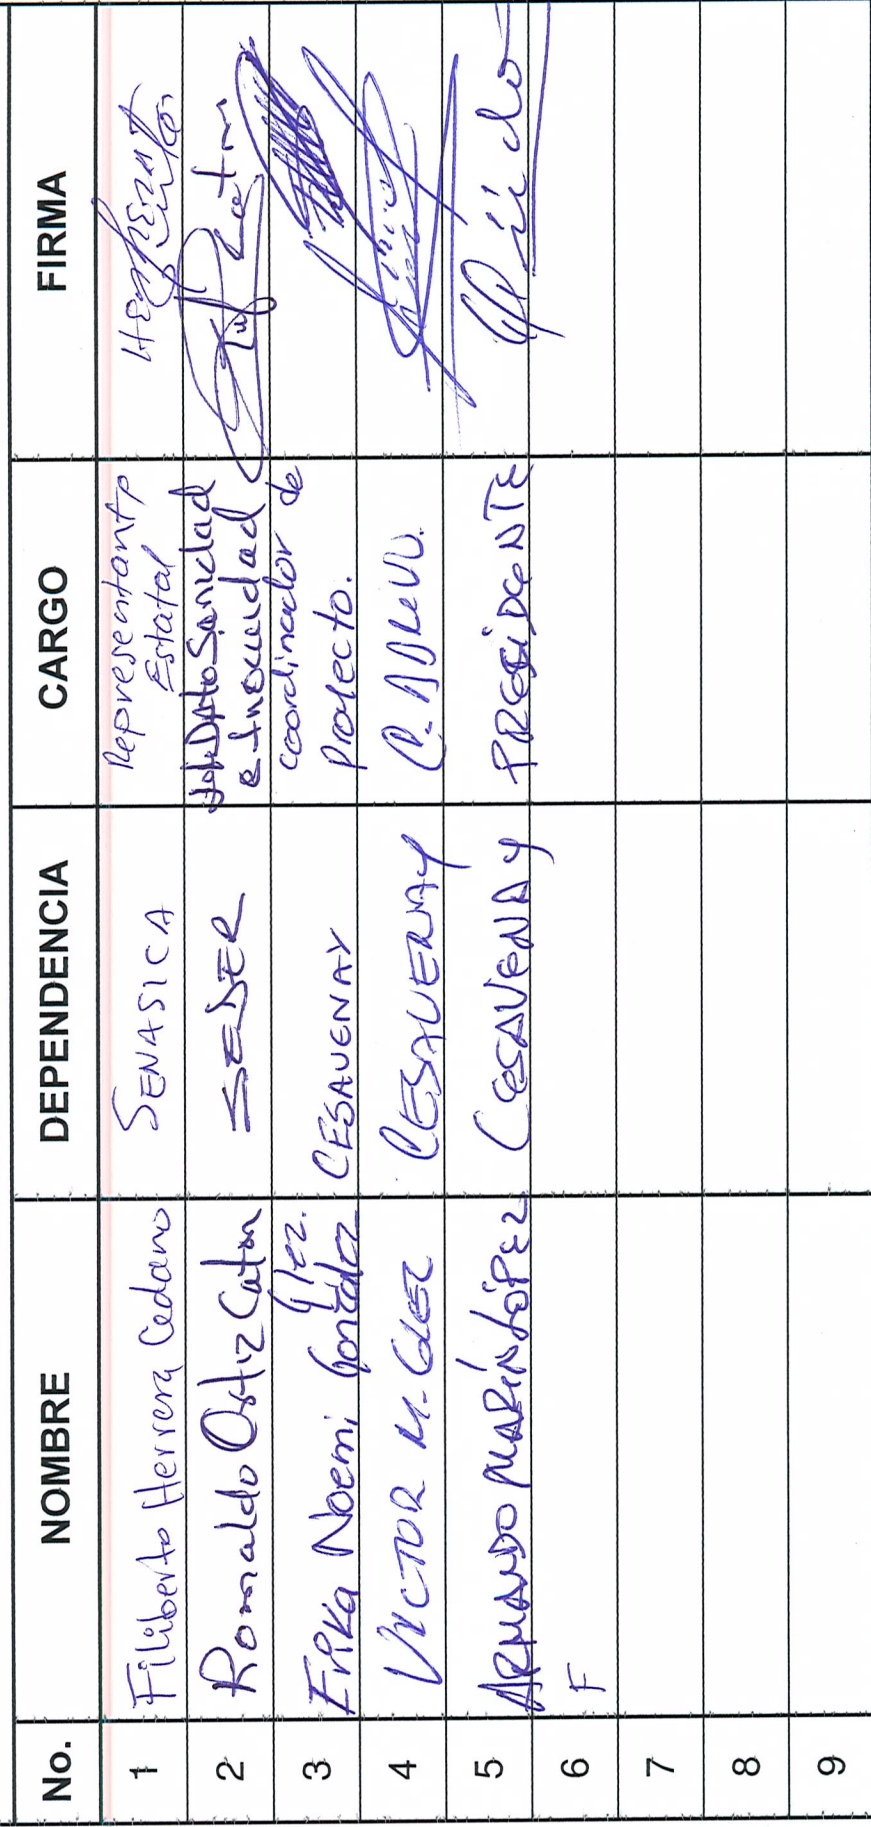 No. NOMBRE DEPENDENCIA CARGO FIRMA
1 Filiberto Herrera Cedano SENASICA Representante
Estatal
2 Romaldo Ortiz Caton SEDER Sanidad
e Inocuidad
3 Erika Noemi González Glez. CESAVENAY coordinador de
Proyecto.
4 VICTOR M. GLEZ CESAVENAY
5 ARMANDO MARÍN LÓPEZ CESAVENAY PRESIDENTE
6 F
7
8
9